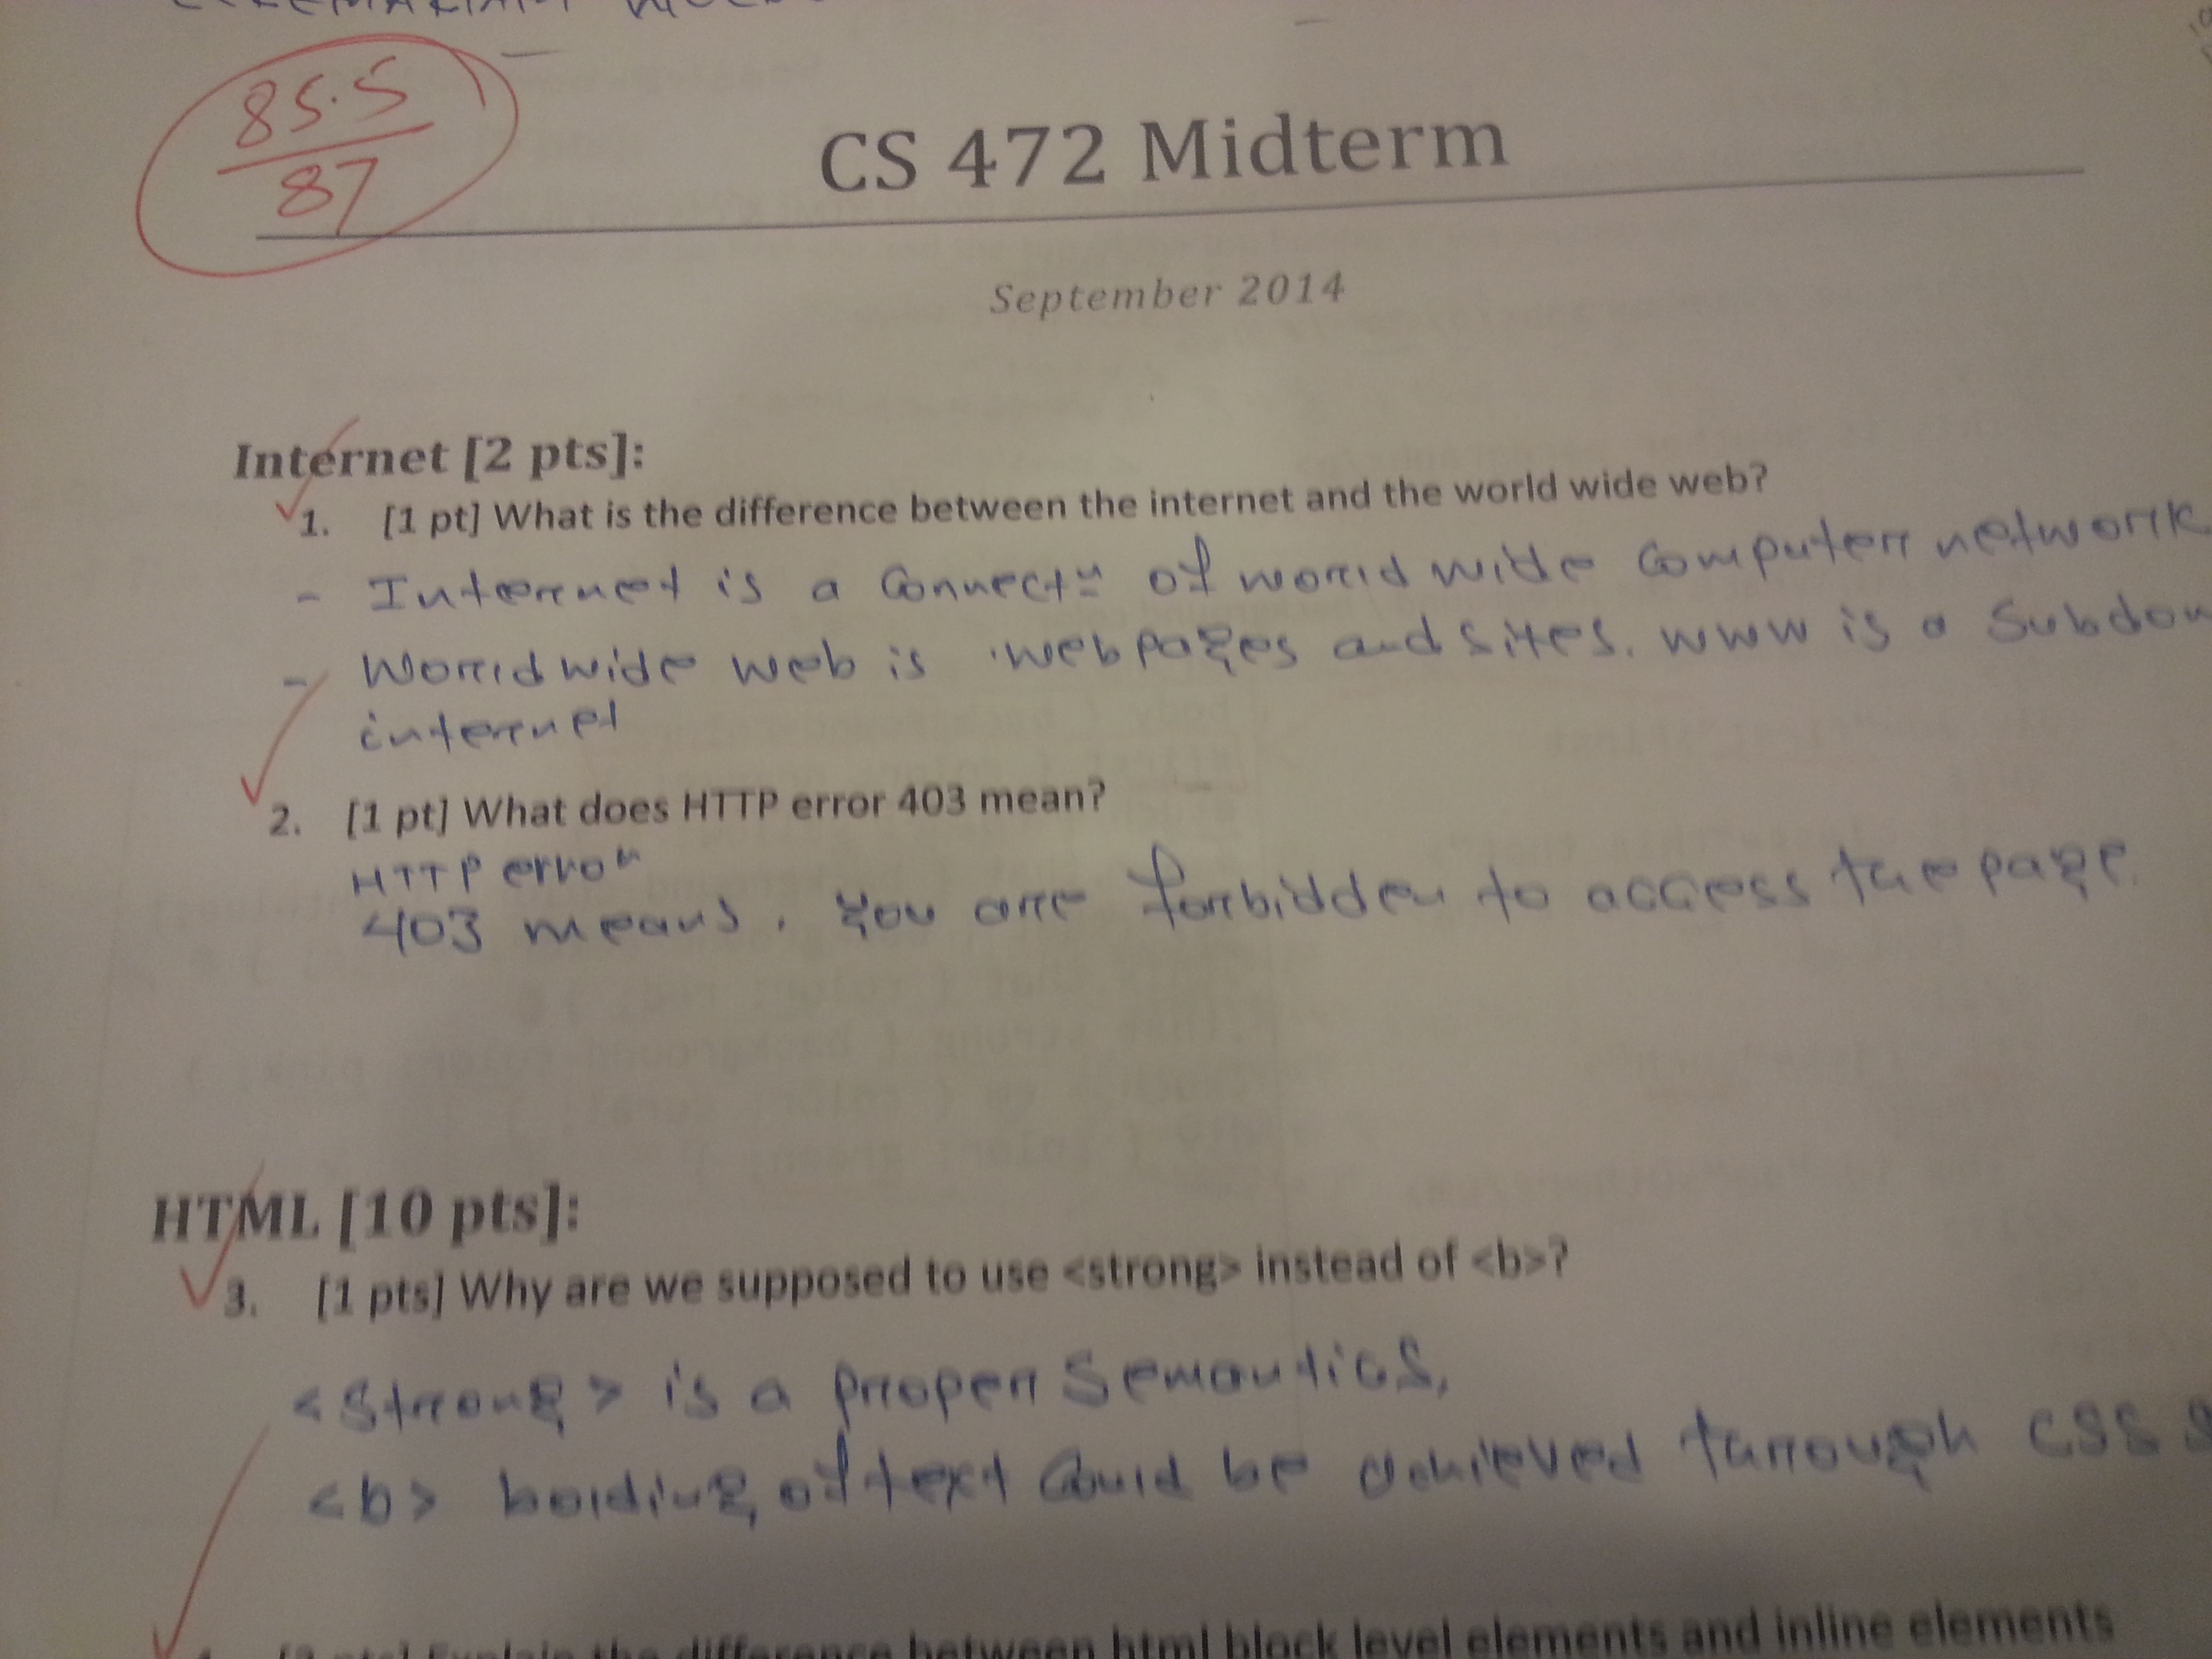 85.5
87
CS 472 Midterm
September 2014
Internet [2 pts]:
1. [1 pt] What is the difference between the internet and the world wide web?
- Internet is a connectn of world wide computer network
- World wide web is webpages and sites. www is a Subdom
internet
2. [1 pt] What does HTTP error 403 mean?
HTTP error
403 means, you are forbidden to access the page.
HTML [10 pts]:
3. [1 pts] Why are we supposed to use <strong> instead of <b>?
<strong> is a proper semantics,
<b> bolding of text could be achieved through CSS
[2 pts] Explain the difference between html block level elements and inline elements